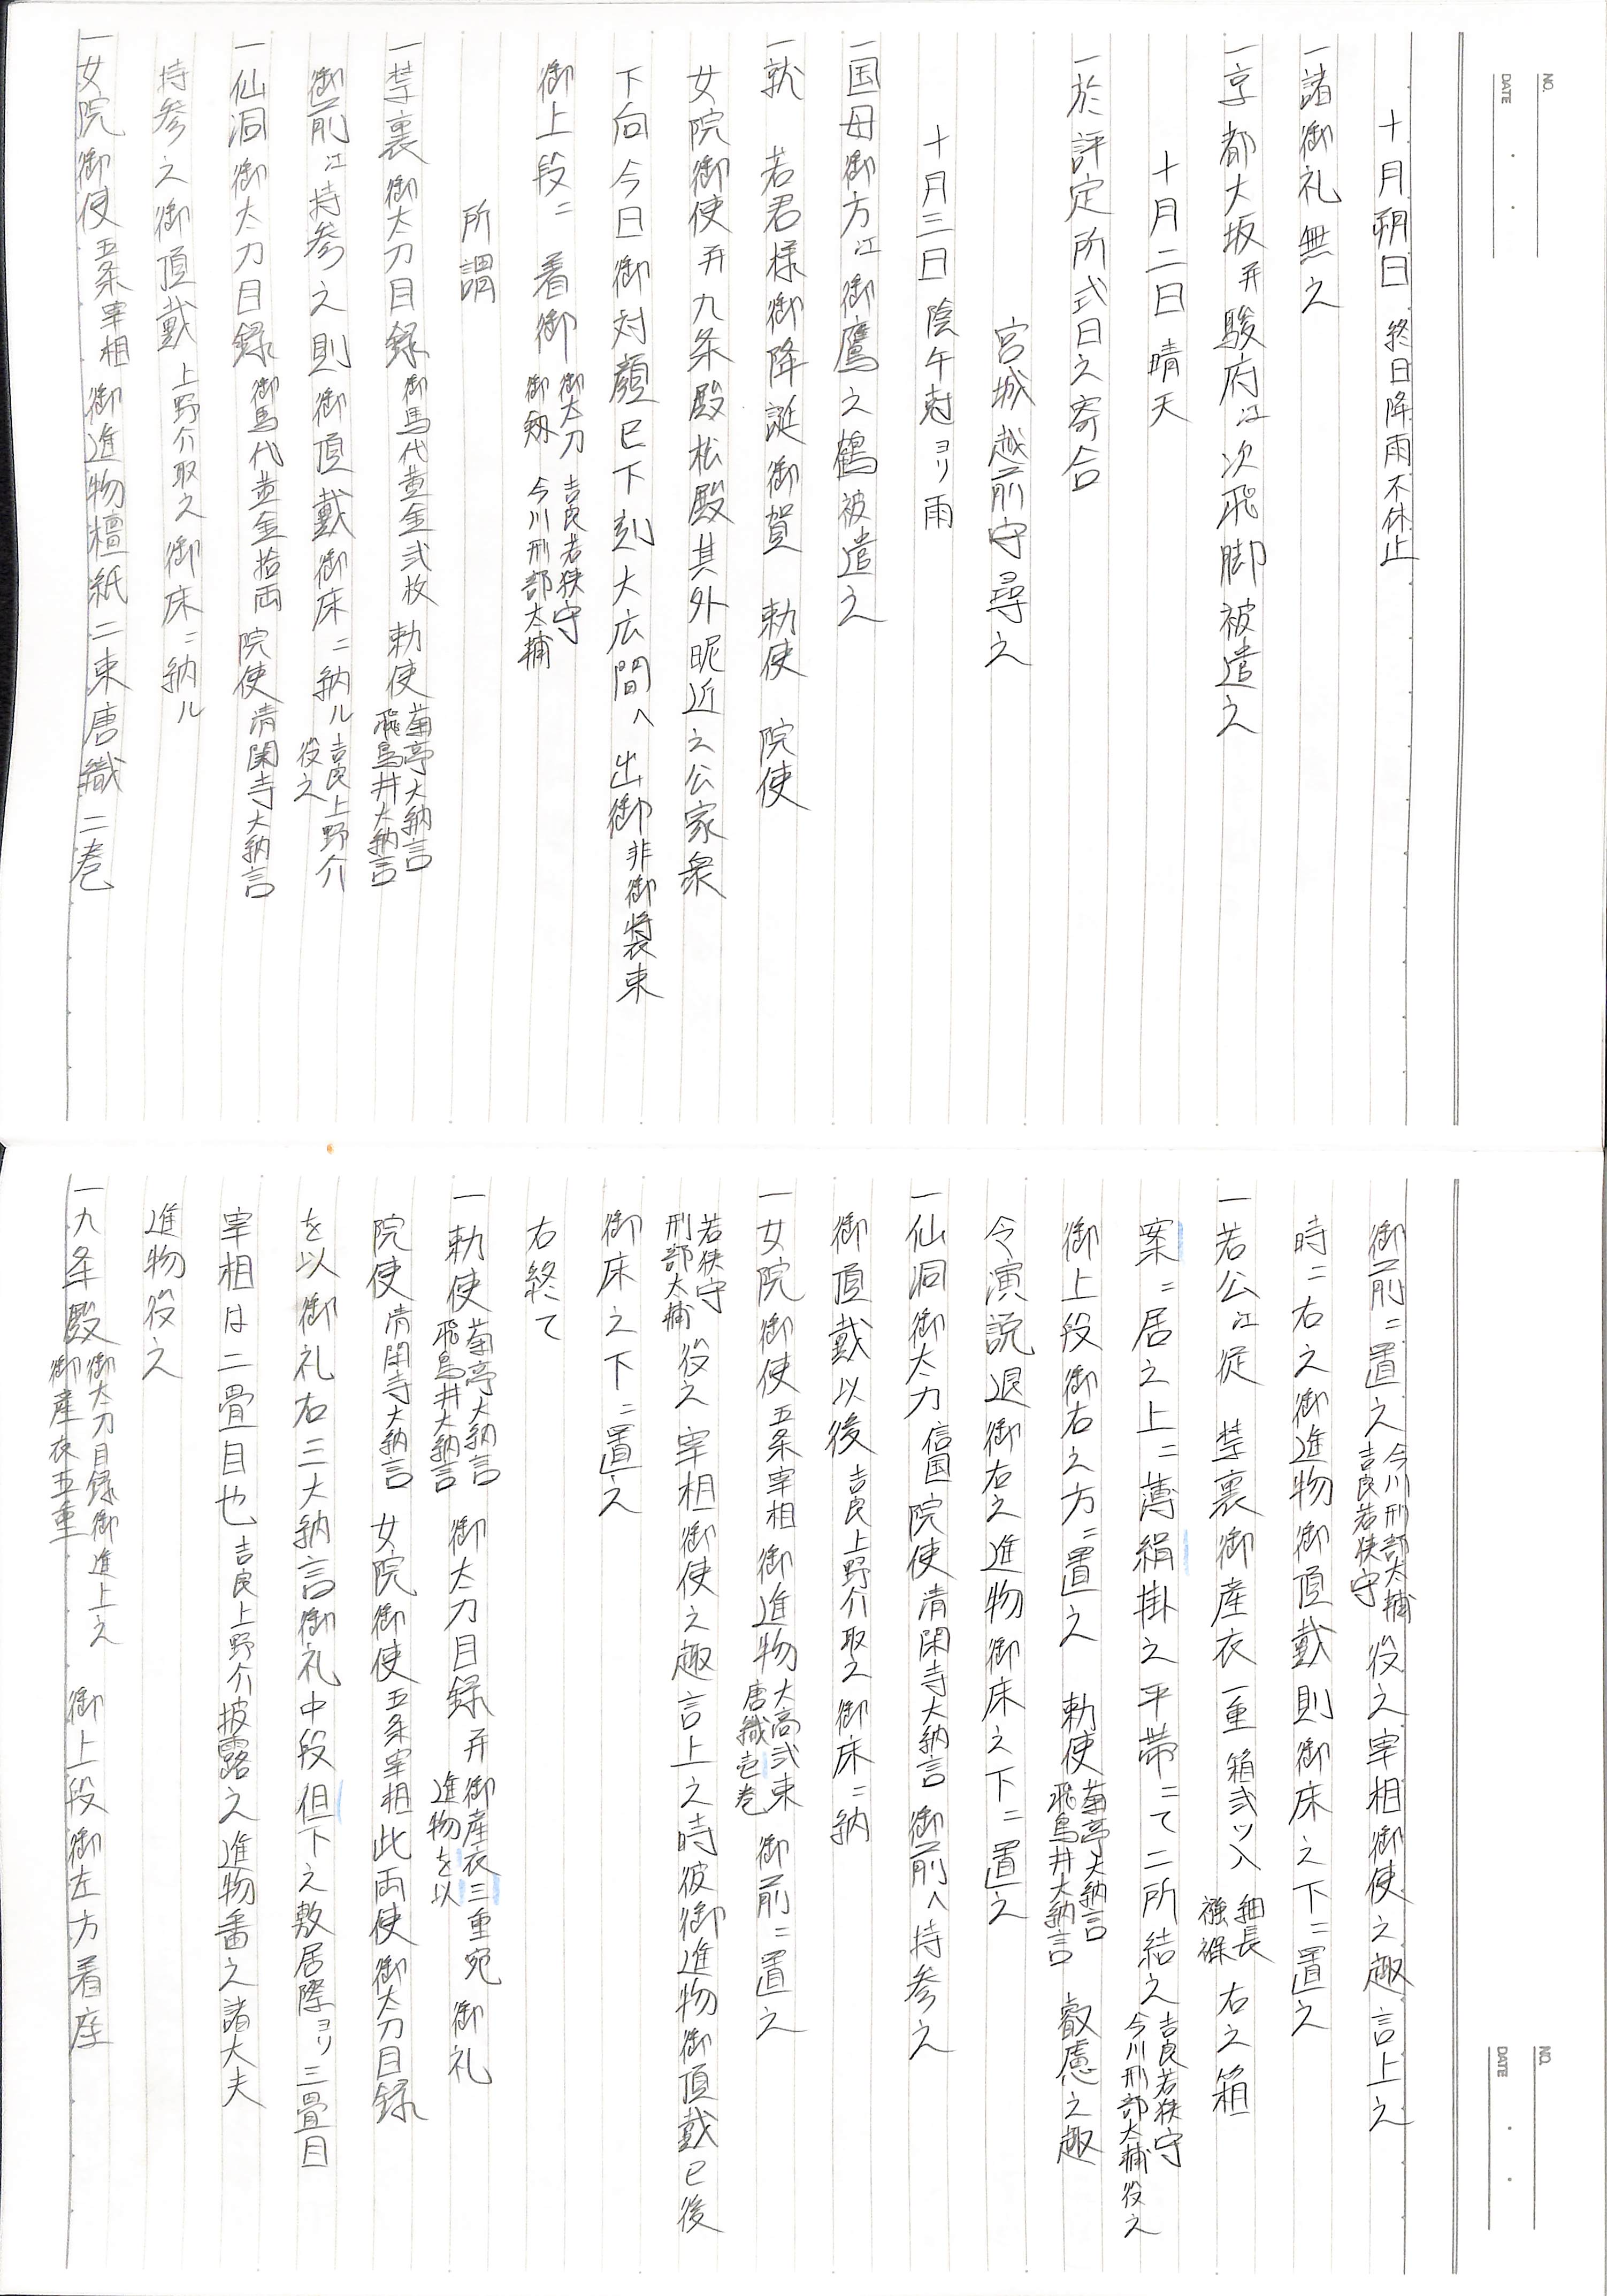 NO.
DATE
十月朔日 終日降雨不休止
一諸御礼無之
一京都大坂并駿府江次飛脚被遣之
十月二日 晴天
一於評定所式日之寄合
宮城越前守尋之
十月三日 陰午刻ヨリ雨
一国母御方江御鷹之鶴被遣之
一就 若君様御降誕御賀 勅使 院使
女院御使并九条殿松殿其外昵近之公家衆
下向今日御対顔巳下刻大広間へ 出御 非御装束
御上段ニ 着御 御太刀 吉良若狭守
御剱 今川刑部大輔
所謂
一禁裏御太刀目録 御馬代黄金弐枚 勅使 菊亭大納言
飛鳥井大納言
御前江持参之則御頂戴御床ニ納ル 吉良上野介
役之
一仙洞御太刀目録 御馬代黄金拾両 院使 清閑寺大納言
持参之御頂戴 上野介取之御床ニ納ル
一女院御使 五条宰相 御進物檀紙二束唐織二巻
NO.
DATE
御前ニ置之 今川刑部大輔
吉良若狭守 役之宰相御使之趣言上之
時ニ右之御進物御頂戴則御床之下ニ置之
一若公江従 禁裏御産衣一重 箱弐ツ入 細長
襁褓 右之箱
案ニ居之上ニ薄絹掛之平帯ニて二所結之 吉良若狭守
今川刑部大輔 役之
御上段御右之方ニ置之 勅使 菊亭大納言
飛鳥井大納言 叡慮之趣
令演説退御右之進物御床之下ニ置之
一仙洞御太刀 信国 院使 清閑寺大納言 御前へ持参之
御頂戴以後 吉良上野介取之御床ニ納
一女院御使 五条宰相 御進物 大高弐束
唐織壱巻 御前ニ置之
若狭守
刑部大輔 役之 宰相御使之趣言上之時彼御進物御頂戴已後
御床之下ニ置之
右終て
一勅使 菊亭大納言
飛鳥井大納言 御太刀目録并 御産衣三重宛
進物を以 御礼
院使 清閑寺大納言 女院御使 五条宰相 此両使御太刀目録
を以御礼右三大納言御礼中段但下之敷居際ヨリ三畳目
宰相は二畳目也 吉良上野介披露之進物番之諸大夫
進物役之
一九条殿 御太刀目録御進上之
御産衣五重 御上段御左方着座